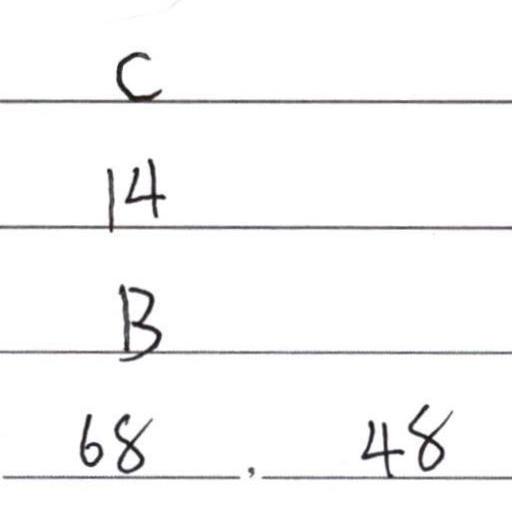 C
14
B
68, 48